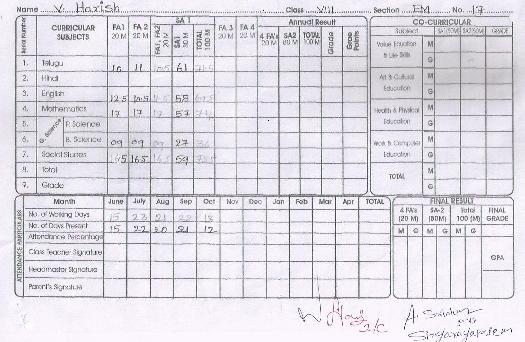 Name V. Harish Class VIII Section EM No. 17
Serial Number CURRICULAR SUBJECTS FA1 20 M FA 2 20 M FA1, FA2 20 M SA 1 SA1 80 M TOTAL 100 M FA 3 20 M FA 4 20 M Annual Result 4 FA's 20 M SA2 80 M TOTAL 100 M Grade Grade Points
1. Telugu 10 11 10.5 61
2. Hindi
3. English 12.5 10.5 58
4. Mathematics 17 17 17 57
5. G. Science P. Science
6. B. Science 09 09 27 36
7. Social Studies 16.5 16.5 16.5 59
8. Total
9. Grade
CO-CURRICULAR
Subject SA1(50M) SA2(50M) GRADE
Value Education & Life Skills M G
Art & Cultural Education M G
Health & Physical Education M G
Work & Computer Education M G
TOTAL M G
ATTENDANCE PARTICULARS Month June July Aug Sep Oct Nov Dec Jan Feb Mar Apr TOTAL
No. of Working Days 15 23 21 22 18
No. of Days Present 15 22 20 21 17
Attendance Percentage
Class Teacher Signature
Headmaster Signature
Parent's Signature
FINAL RESULT
4 FA's (20 M) SA-2 (80M) Total 100 (M) FINAL GRADE
M G M G M G
GPA